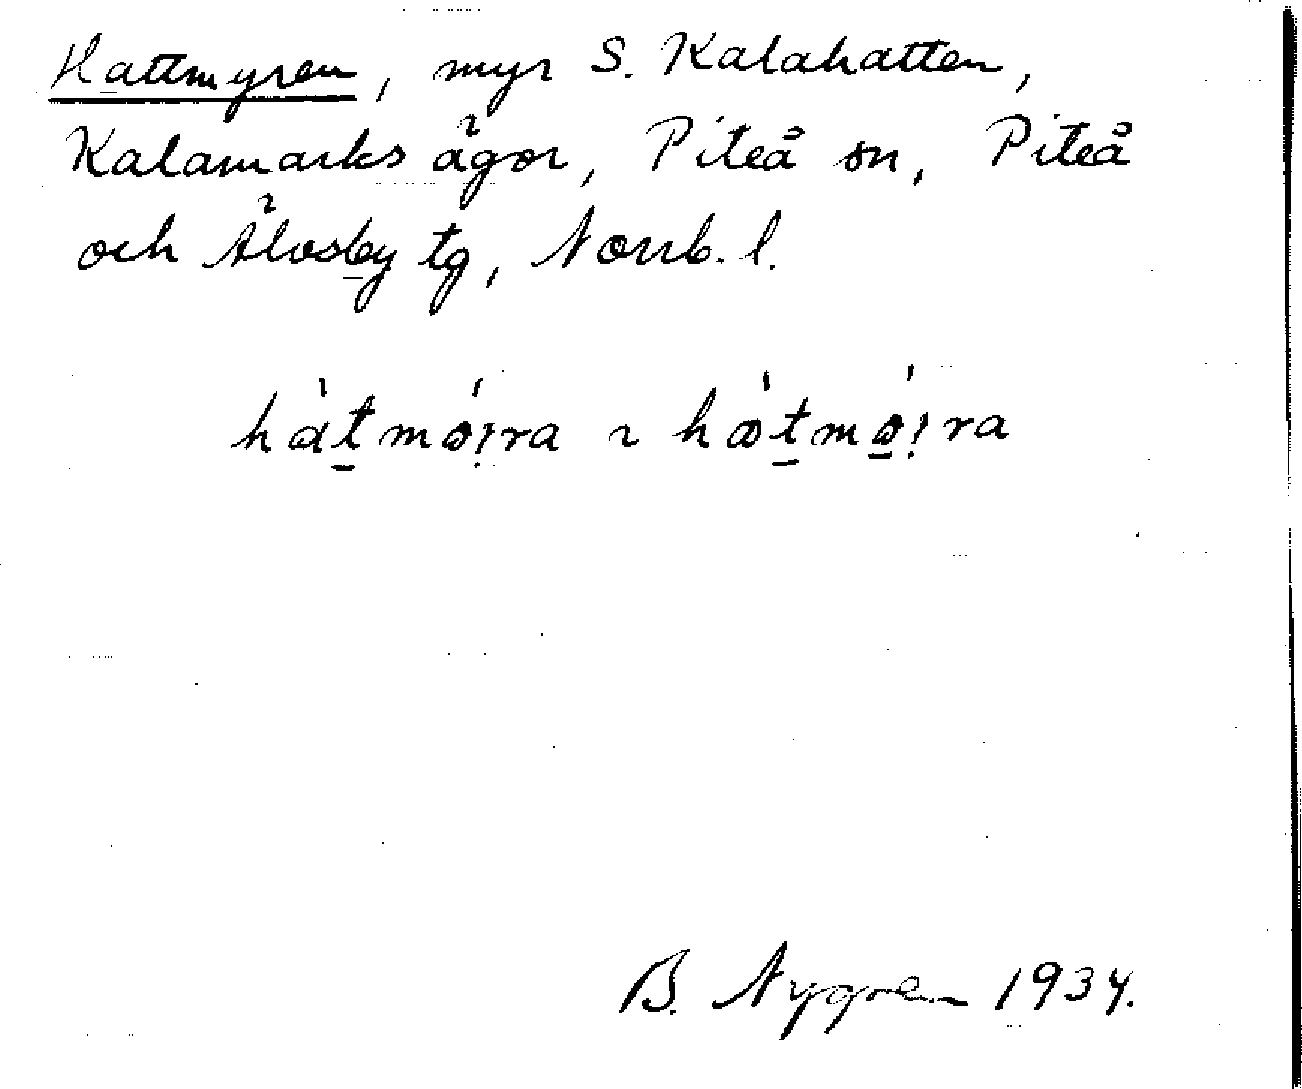 Hattmyren, myr S. Kalahatten,
Kalamarks ägor, Piteå sn, Piteå
och Älvsby tg, Norrb. l.
hàt̠mǿi̩ra ~ hæ̀t̠mǿ̠i̩ra
B. Nygren 1934.